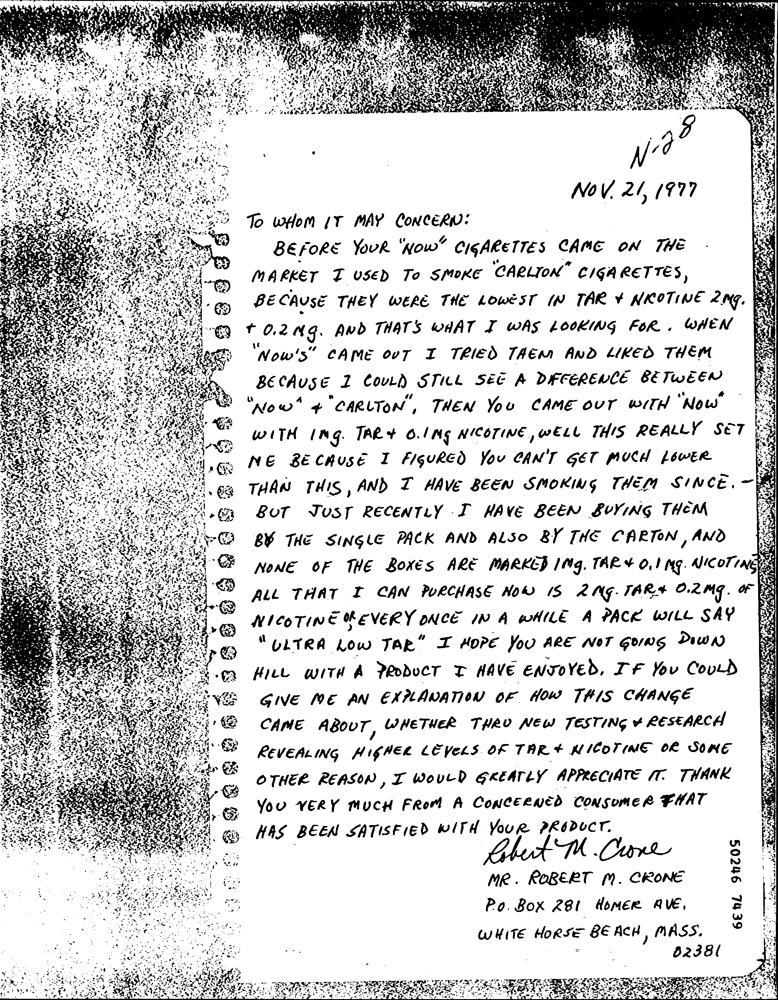 N-28
NOV. 21, 1977
TO WHOM IT MAY CONCERN:
BEFORE YOUR "NOW" CIGARETTES CAME ON THE
MARKET I USED TO SMOKE "CARLTON" CIGARETTES,
BECAUSE THEY WERE THE LOWEST IN TAR + NICOTINE 2MG.
+ 0.2 MG. AND THAT'S WHAT I WAS LOOKING FOR. WHEN
"NOW'S" CAME OUT I TRIED THEM AND LIKED THEM
BECAUSE I COULD STILL SEE A DIFFERENCE BETWEEN
"NOW" + "CARLTON", THEN YOU CAME OUT WITH "NOW"
WITH 1MG. TAR + 0.1MG NICOTINE, WELL THIS REALLY SET
ME BECAUSE I FIGURED YOU CAN'T GET MUCH LOWER
THAN THIS, AND I HAVE BEEN SMOKING THEM SINCE. -
BUT JUST RECENTLY I HAVE BEEN BUYING THEM
BY THE SINGLE PACK AND ALSO BY THE CARTON, AND
NONE OF THE BOXES ARE MARKED 1MG. TAR + 0.1 MG. NICOTINE
ALL THAT I CAN PURCHASE NOW IS 2 MG. TAR + 0.2MG. OF
NICOTINE OR EVERY ONCE IN A WHILE A PACK WILL SAY
"ULTRA LOW TAR" I HOPE YOU ARE NOT GOING DOWN
HILL WITH A PRODUCT I HAVE ENJOYED. IF YOU COULD
GIVE ME AN EXPLANATION OF HOW THIS CHANGE
CAME ABOUT, WHETHER THRU NEW TESTING + RESEARCH
REVEALING HIGHER LEVELS OF TAR + NICOTINE OR SOME
OTHER REASON, I WOULD GREATLY APPRECIATE IT. THANK
YOU VERY MUCH FROM A CONCERNED CONSUMER THAT
HAS BEEN SATISFIED WITH YOUR PRODUCT.
Robert M. Crone
MR. ROBERT M. CRONE
P.O. BOX 281 HOMER AVE,
WHITE HORSE BEACH, MASS.
02381
50246 7439